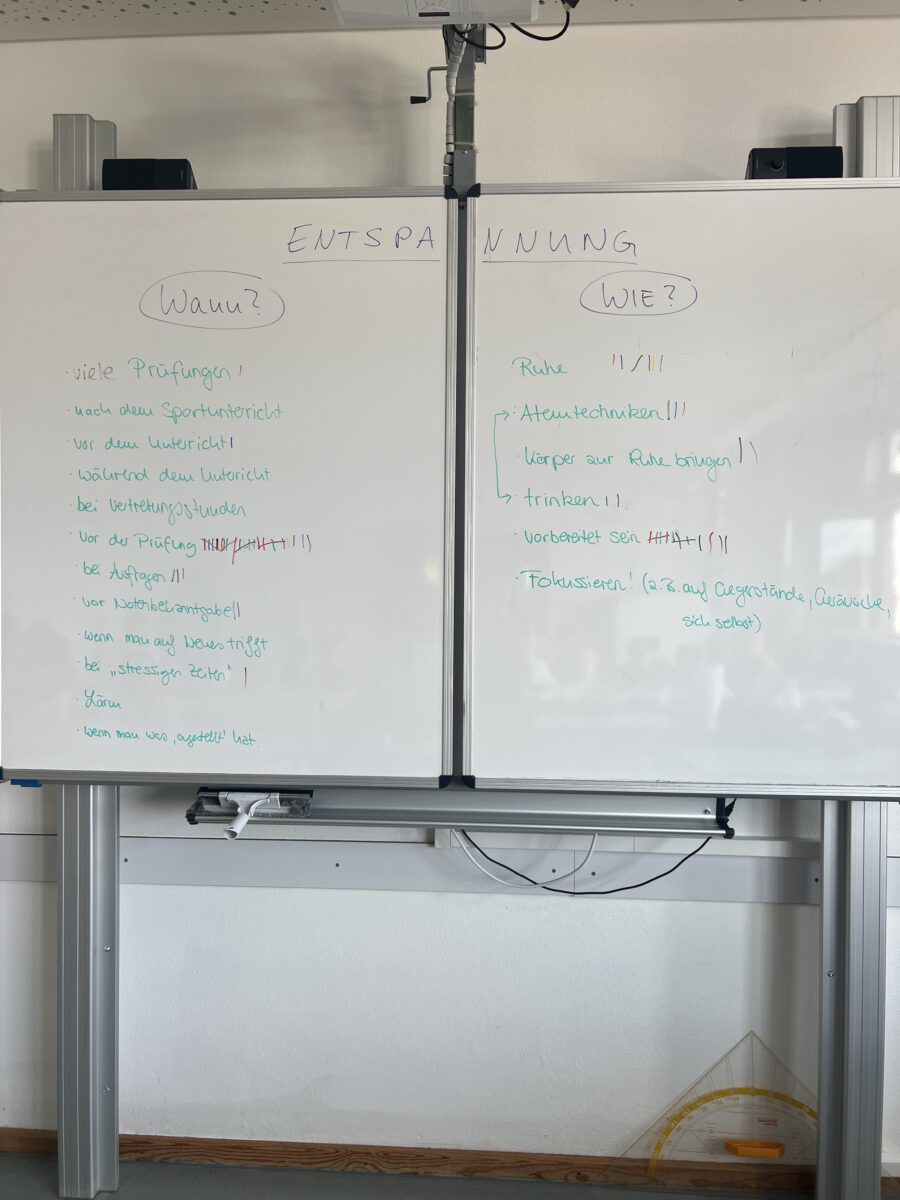 ENTSPANNUNG
Wann?
· viele Prüfungen
· nach dem Sportunterricht
· vor dem Unterricht
· während dem Unterricht
· bei Vertretungsstunden
· Vor der Prüfung
· bei Ausfragen
· vor Notenbekanntgabe
· wenn man auf Neues trifft
· bei „stressigen Zeiten"
· Lärm
· wenn man was „angestellt" hat.
WIE?
· Ruhe
· Atemtechniken
· Körper zur Ruhe bringen
· trinken
· vorbereitet sein
· Fokussieren! (z.B. auf Gegenstände, Geräusche,
sich selbst)